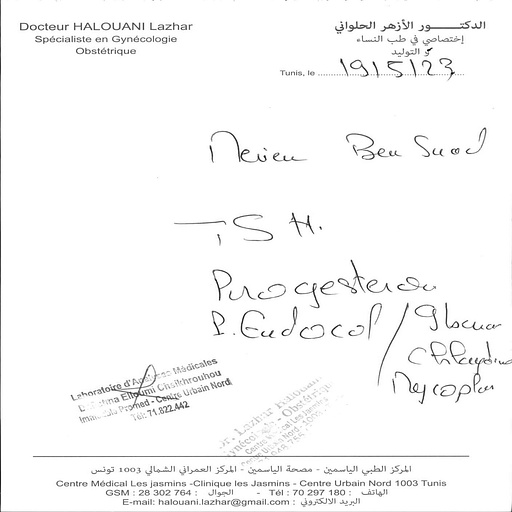 Docteur HALOUANI Lazhar
Spécialiste en Gynécologie
Obstétrique
الدكتـــور الأزهر الحلواني
إختصاصي في طب النساء
و التوليد
Tunis, le 19/5/23
Ben
TSH.
P. Endocol /
Chlamydia
Mycoplas
Laboratoire d'Analyses Médicales
Immeuble Promed - Centre Urbain Nord
Tél: 71.822.442
Dr. Lazhar Halouani
Gynécologue - Obstétrique
المركز الطبي الياسمين - مصحة الياسمين - المركز العمراني الشمالي 1003 تونس
Centre Médical Les jasmins -Clinique les Jasmins - Centre Urbain Nord 1003 Tunis
GSM : 28 302 764 : الجوال - Tél : 70 297 180 : الهاتف
E-mail: halouani.lazhar@gmail.com : البريد الالكتروني